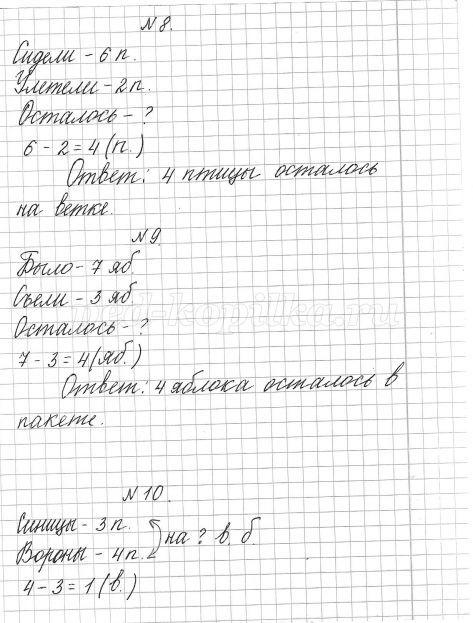 № 8.
Сидели - 6 п.
Улетели - 2 п.
Осталось - ?
6 - 2 = 4 (п.)
Ответ: 4 птицы осталось
на ветке.
№ 9.
Было - 7 яб.
Съели - 3 яб.
Осталось - ?
7 - 3 = 4 (яб.)
Ответ: 4 яблока осталось в
пакете.
№ 10.
Синицы - 3 п.
на ? в. б.
Вороны - 4 п.
4 - 3 = 1 (в.)